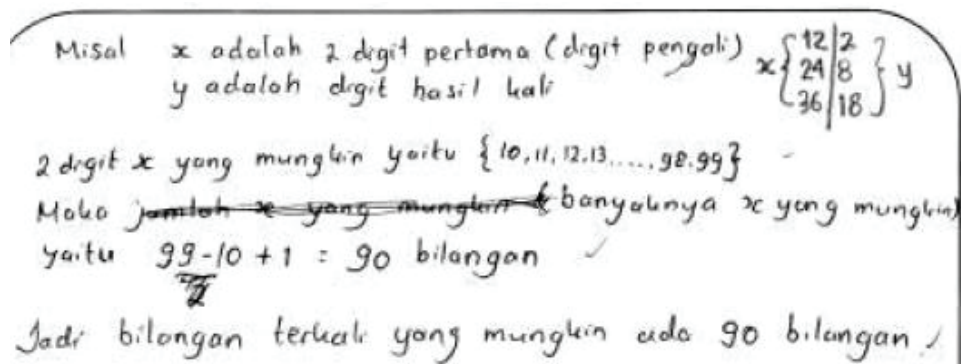 Misal x adalah 2 digit pertama (digit pengali) x { 12 | 2
24 | 8
36 | 18 } y
y adalah digit hasil kali
2 digit x yang mungkin yaitu { 10, 11, 12, 13, ...., 98, 99 }
Maka jumlah x yang mungkin banyaknya x yang mungkin)
yaitu 99 - 10 + 1 = 90 bilangan ✓
Jadi bilangan terkali yang mungkin ada 90 bilangan.